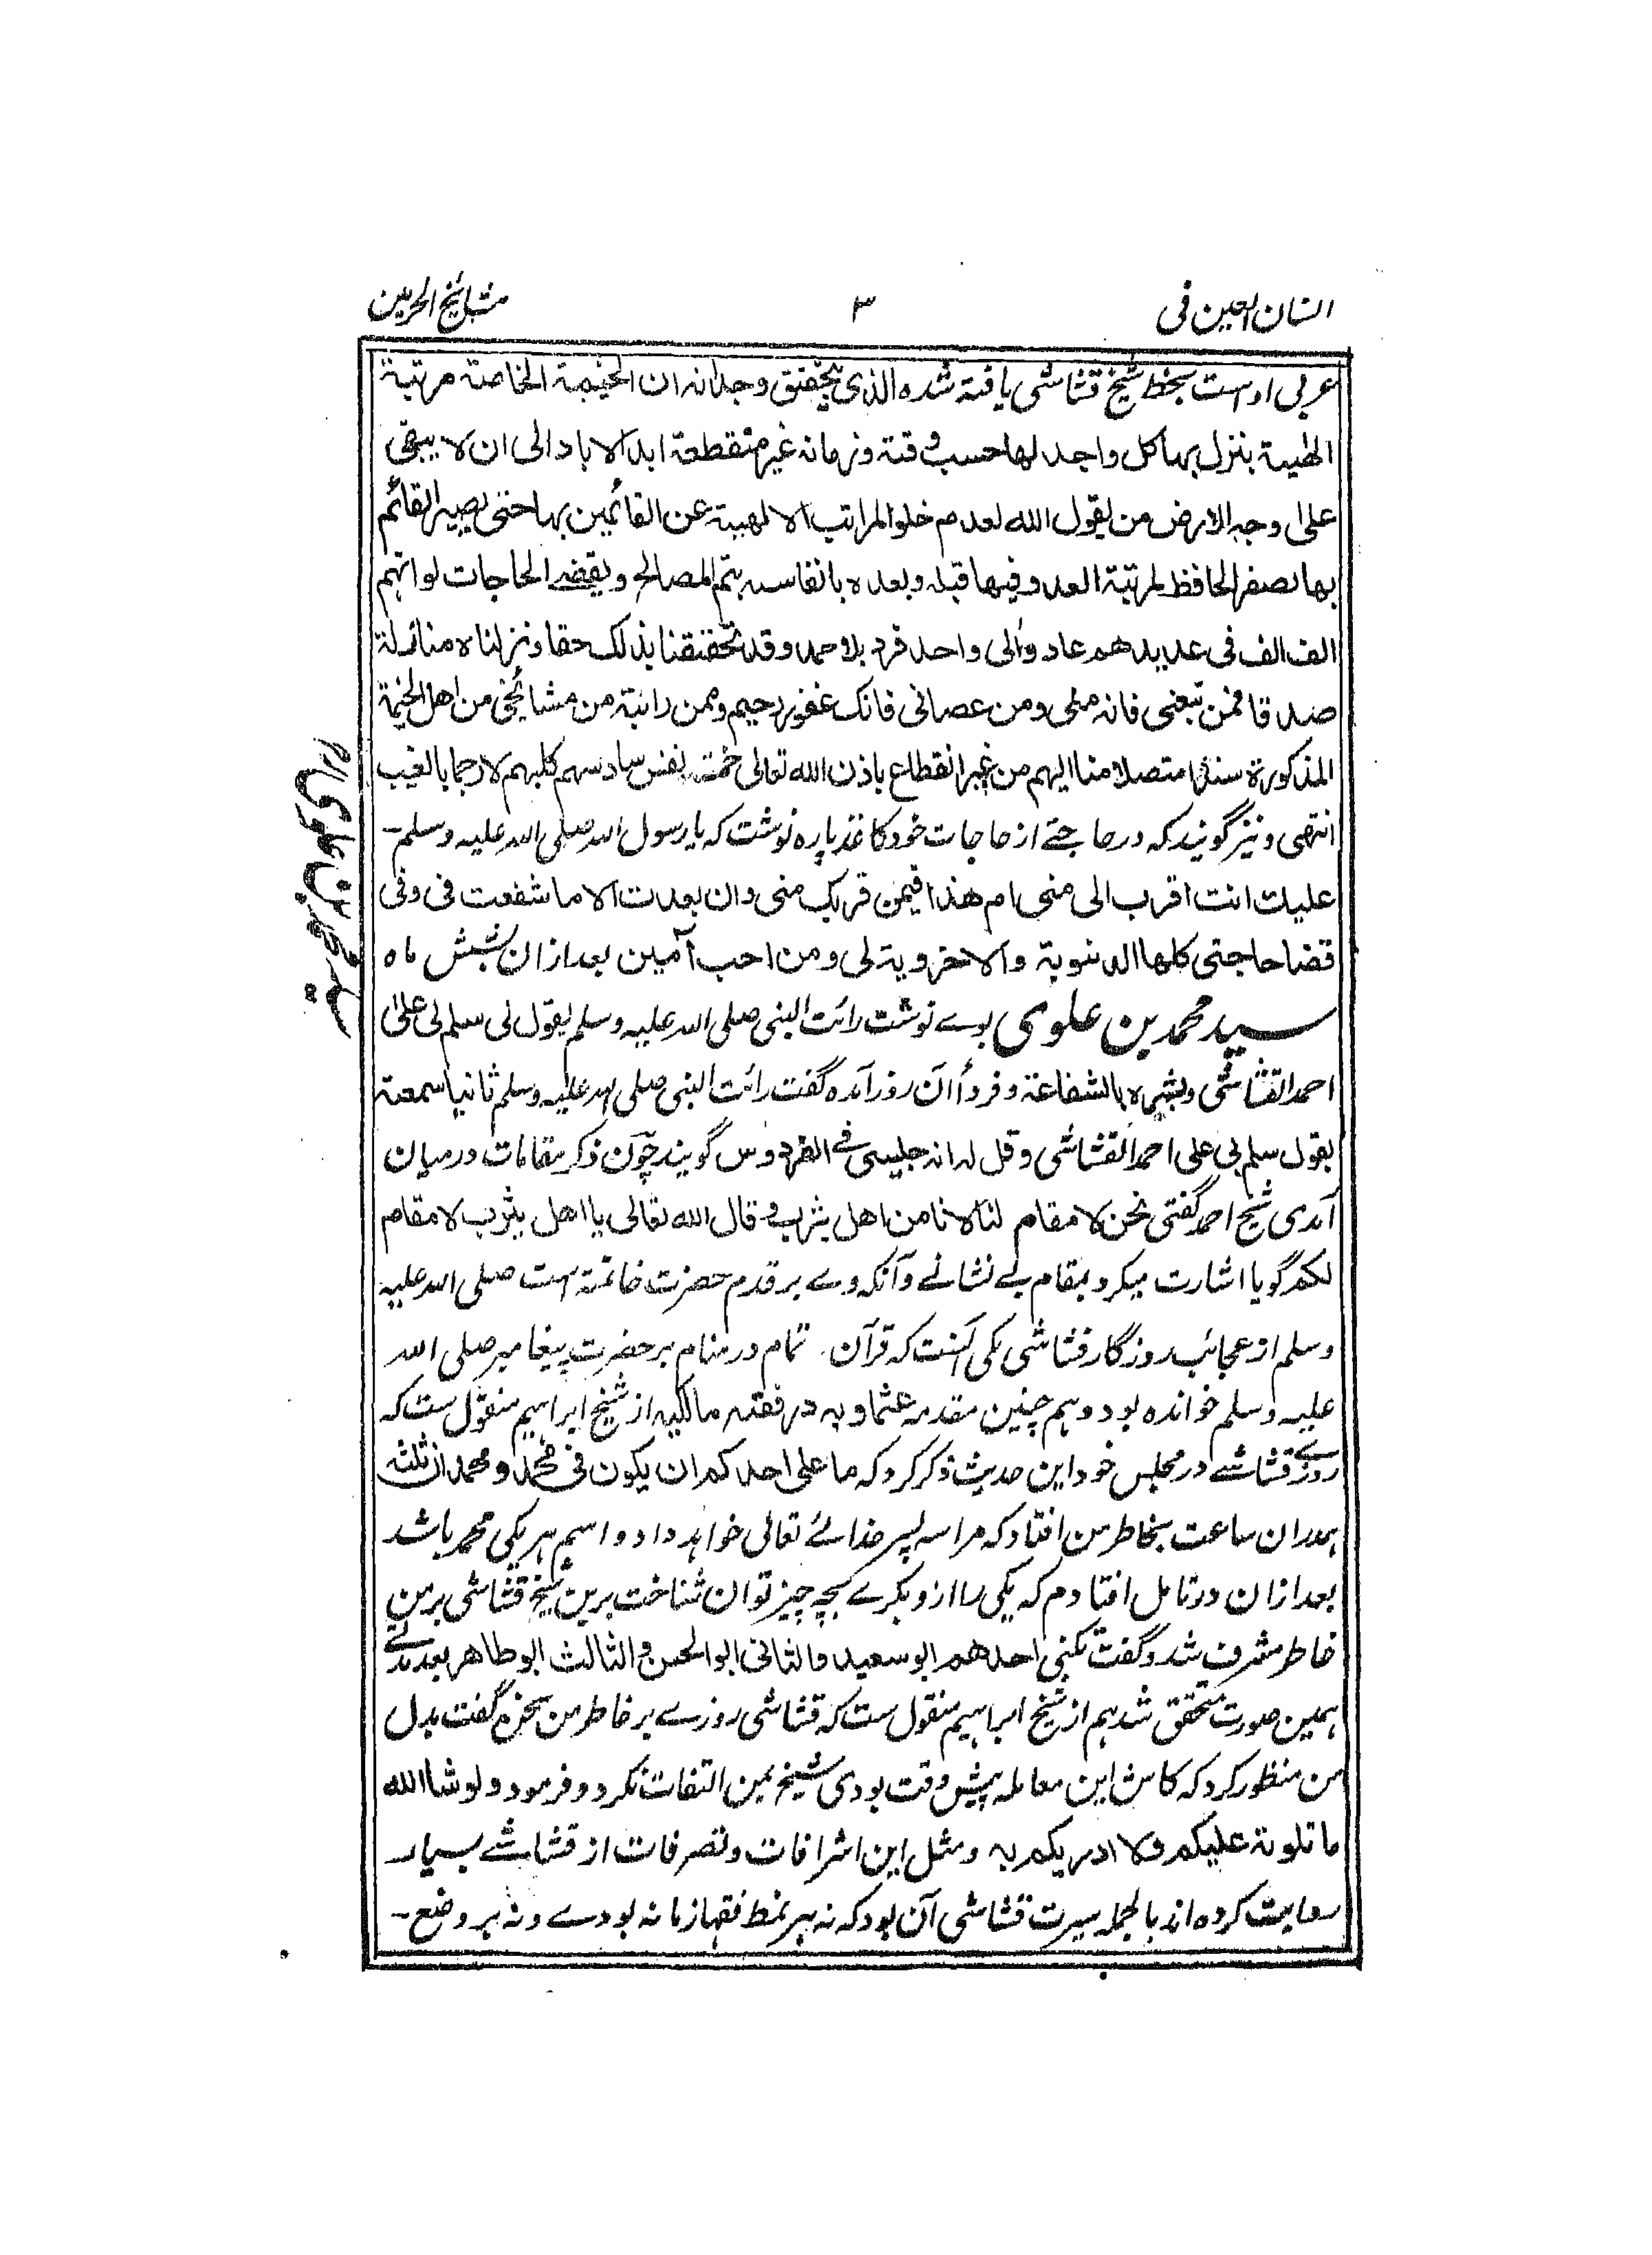 انسان العین فی ۳ مشایخ الحرمین
عربی اوست بخط شیخ قشاشی یافته شده الذی یتحقق وجدانه ان الختمیة الخاصة مرتبة
الهٰیة ینزل بها کل واحد لها حسب وقته وزمانه غیر منقطعة ابد الاباد الی ان لا یبقی
علی وجه الارض من یقول الله لعدم خلو المراتب الالهیة عن القائمین بها حتی یصیر القائم
بها بصفر الحافظ لمرتبة العد وفیها قبله وبعده بانفاسه یتم المصالح ویقضے الحاجات لوانهم
الف الف فی عدیدهم عاد والی واحد فرد بلا حد وقد تحققنا بذلک حقا ونزلناه منازلة
صدقا فمن تبعنی فانه منی ومن عصانی فانک غفور رحیم وممن رائیة من مشائخی من اهل الختمیة
المذکورة سندا متصلا منا الیهم من غیر انقطاع باذن الله تعالی خمسة نفس سادسهم کلبهم لا رجما بالغیب
انتهی ونیز گویند که در حاجتے از حاجات خود کاغذ پاره نوشت که یا رسول الله صلی الله علیه وسلم۔
علیک انت اقرب الی منی ام هذا فیمن قربک منی وان بعدت الا ما شفعت فی وفی
قضا حاجتی کلها الدنیویة والاخرویة لی ومن احب آمین بعد ازان شش ماه
سید محمد بن علوی بوے نوشت رائت النبی صلی الله علیه وسلم یقول لی سلم لی علی
احمد القشاشی وبشره بالشفاعة وفردا آن روز آمده گفت رائت النبی صلی الله علیه وسلم ثانیا سمعته
یقول سلم لی علی احمد القشاشی وقل له انه جلیسی فے الفردوس گویند چون ذکر مقامات درمیان
آمدی شیخ احمد گفتی نحن لا مقام لنا لاننا من اهل یثرب وقال الله تعالی یا اهل یثرب لا مقام
لکم گویا اشارت میکرد بمقام بے نشانے وآنکه وے بر قدم حضرت خاتمة است صلی الله علیه
وسلم از عجائب روزگار قشاشی یکی آنست که قرآن تمام در منام بر حضرت پیغامبر صلی الله
علیه وسلم خوانده بود و هم چنین مقدمه عشماویه در فقه مالکیه از شیخ ابراهیم منقول ست که
روزے قشاشے در مجلس خود این حدیث ذکر کرد که ما علی احدکم ان یکون فی محمد ومحمدان ثلثه
همدران ساعت بخاطر من افتاد که مرا سه پسر خدائے تعالی خواهد داد و اسم هر یکی محمد باشد
بعد ازان در تامل افتادم که یکی را از دیگرے بچه چیز توان شناخت برین شیخ قشاشی بر من
خاطر مشرف شد و گفت تکنی احدهم ابو سعید والثانی ابو الحسن والثالث ابو طاهر بعد مدتے
همین صورت متحقق شد هم از شیخ ابراهیم منقول ست که قشاشی روزے بر خاطر من سخن گفت بدل
من منظور کرد که کاش این معامله پیش وقت بودی شیخ بمن التفات نکرد و فرمود ولو شا الله
ما تلوته علیکم ولا ادریکم به ومثل این اشرافات وتصرفات از قشاشے بسیار
روایت کرده اند بالجمله سیرت قشاشی آن بود که نه بر نمط فقهاء زمانه بودے ونه بر وضع۔
سید محمد بن علوی